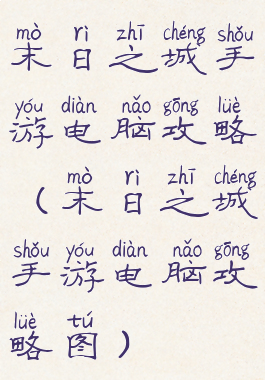 mò rì zhī chéng shǒu
末日之城手
yóu diàn nǎo gōng lüè
游电脑攻略
mò rì zhī chéng
（末日之城
shǒu yóu diàn nǎo gōng
手游电脑攻
lüè tú
略图）